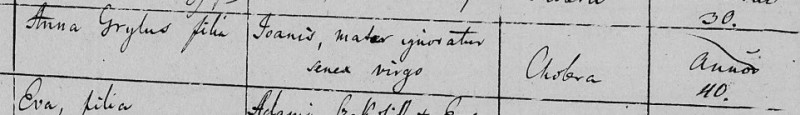 30.
Anna Grylus filia Joanis, mater ignoratur
senex virgo Cholera Annor
40.
Eva, filia Adami